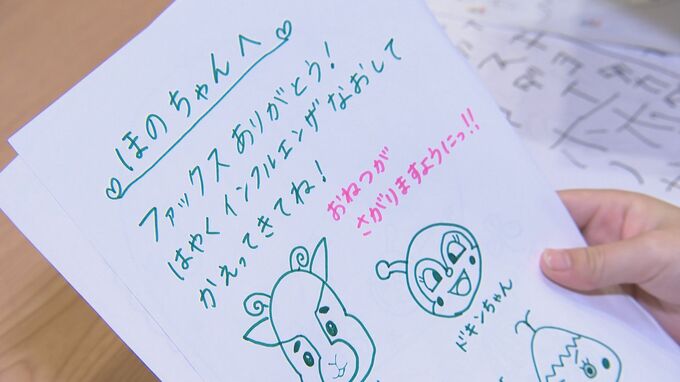 ほのちゃんへ
ファックスありがとう!
はやくインフルエンザなおして
かえってきてね!
おねつが
さがりますようにっ!!
ドキンちゃん